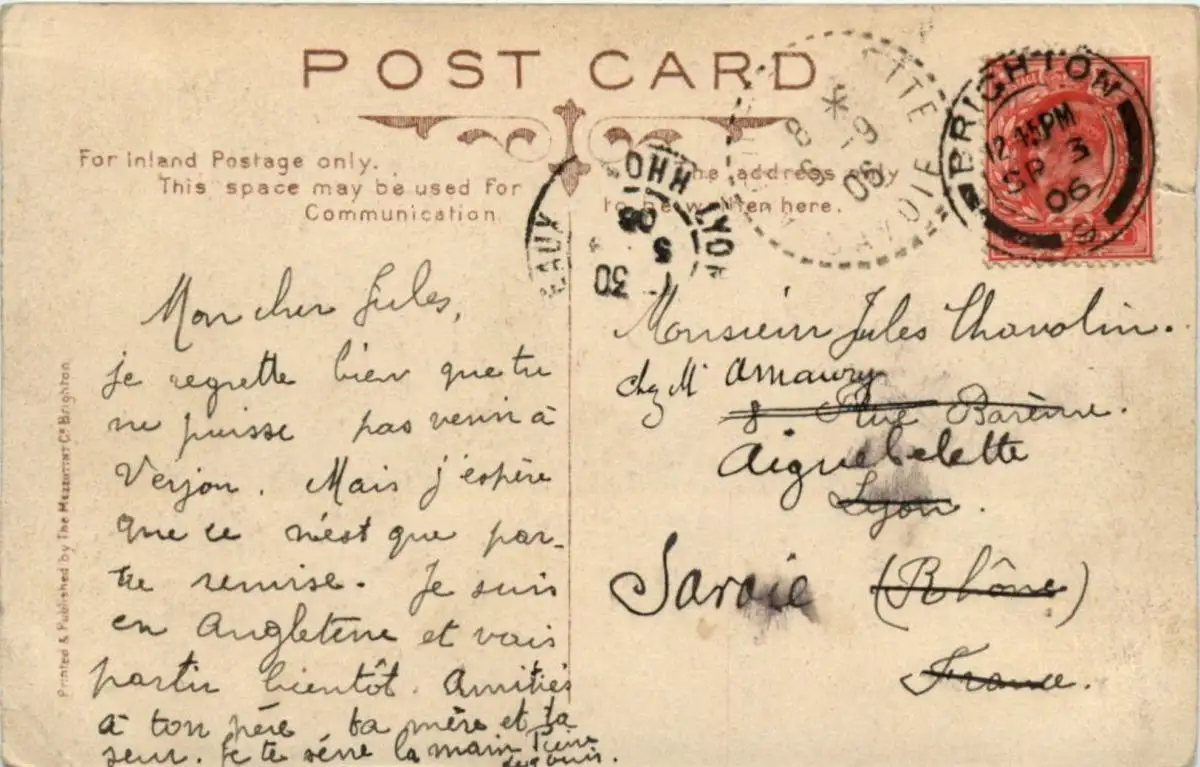 POST CARD
For Inland Postage only.
This space may be used for
Communication.
The address only
to be written here.
BRIGHTON
12.15PM
SP 3
06
LYON
RHÔ
30
5
06
8
9
06
SAVOIE
Mon cher Jules,
je regrette bien que tu
ne puisse pas venir à
Verjon. Mais j'espère
que ce n'est que par-
tie remise. Je suis
en Angleterre et vais
partir bientôt. Amitiés
à ton père ta mère et ta
sœur. Je te serre la main Pierre
Monsieur Jules Chavolin.
chez Mr Amaury
8 Rue Barème.
Aiguebelette
Lyon.
Savoie (Rhône)
France.
Printed & Published by The Mezzotint Co Brighton